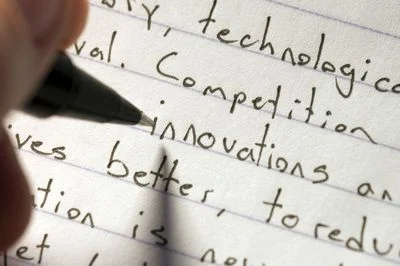 ry, technologica
val. Competition
innovations an
ives better, to redu
tion is now
et